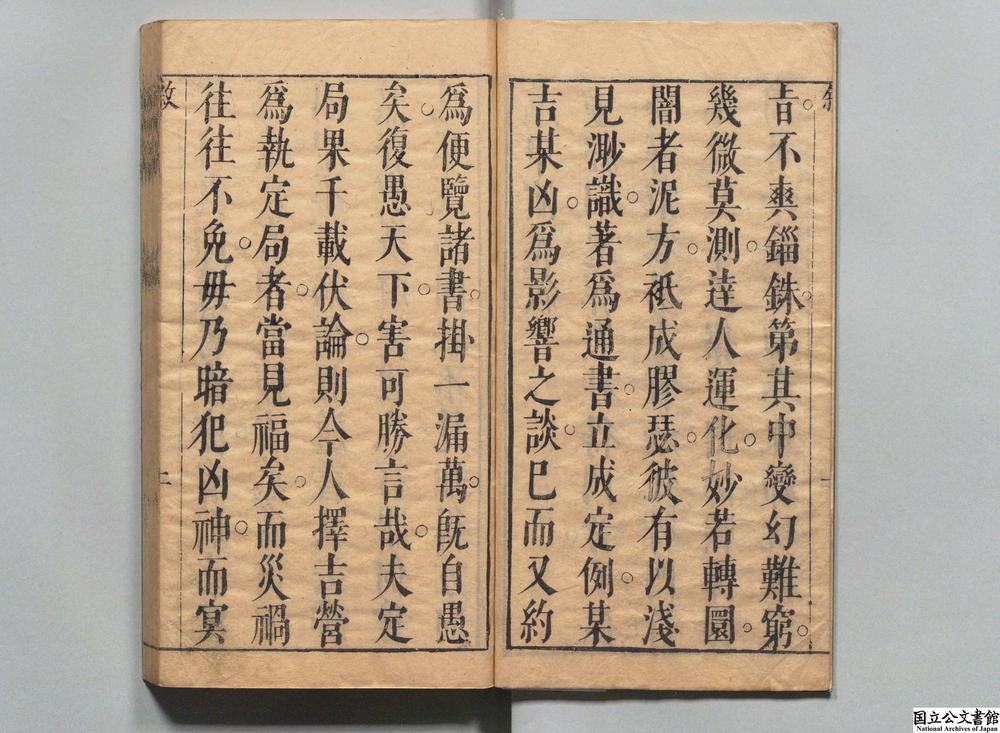 旹不爽錙銖第其中變幻難窮
幾微莫測達人運化妙若轉圜
闇者泥方祗成膠瑟彼有以淺
見渺識著為通書立成定例某
吉某凶為影響之談已而又約
為便覽諸書掛一漏萬旣自愚
矣復愚天下害可勝言哉夫定
局果千載伏論則今人擇吉營
為執定局者當見福矣而災禍
往往不免毋乃暗犯凶神而冥
敘
二
国立公文書館
National Archives of Japan